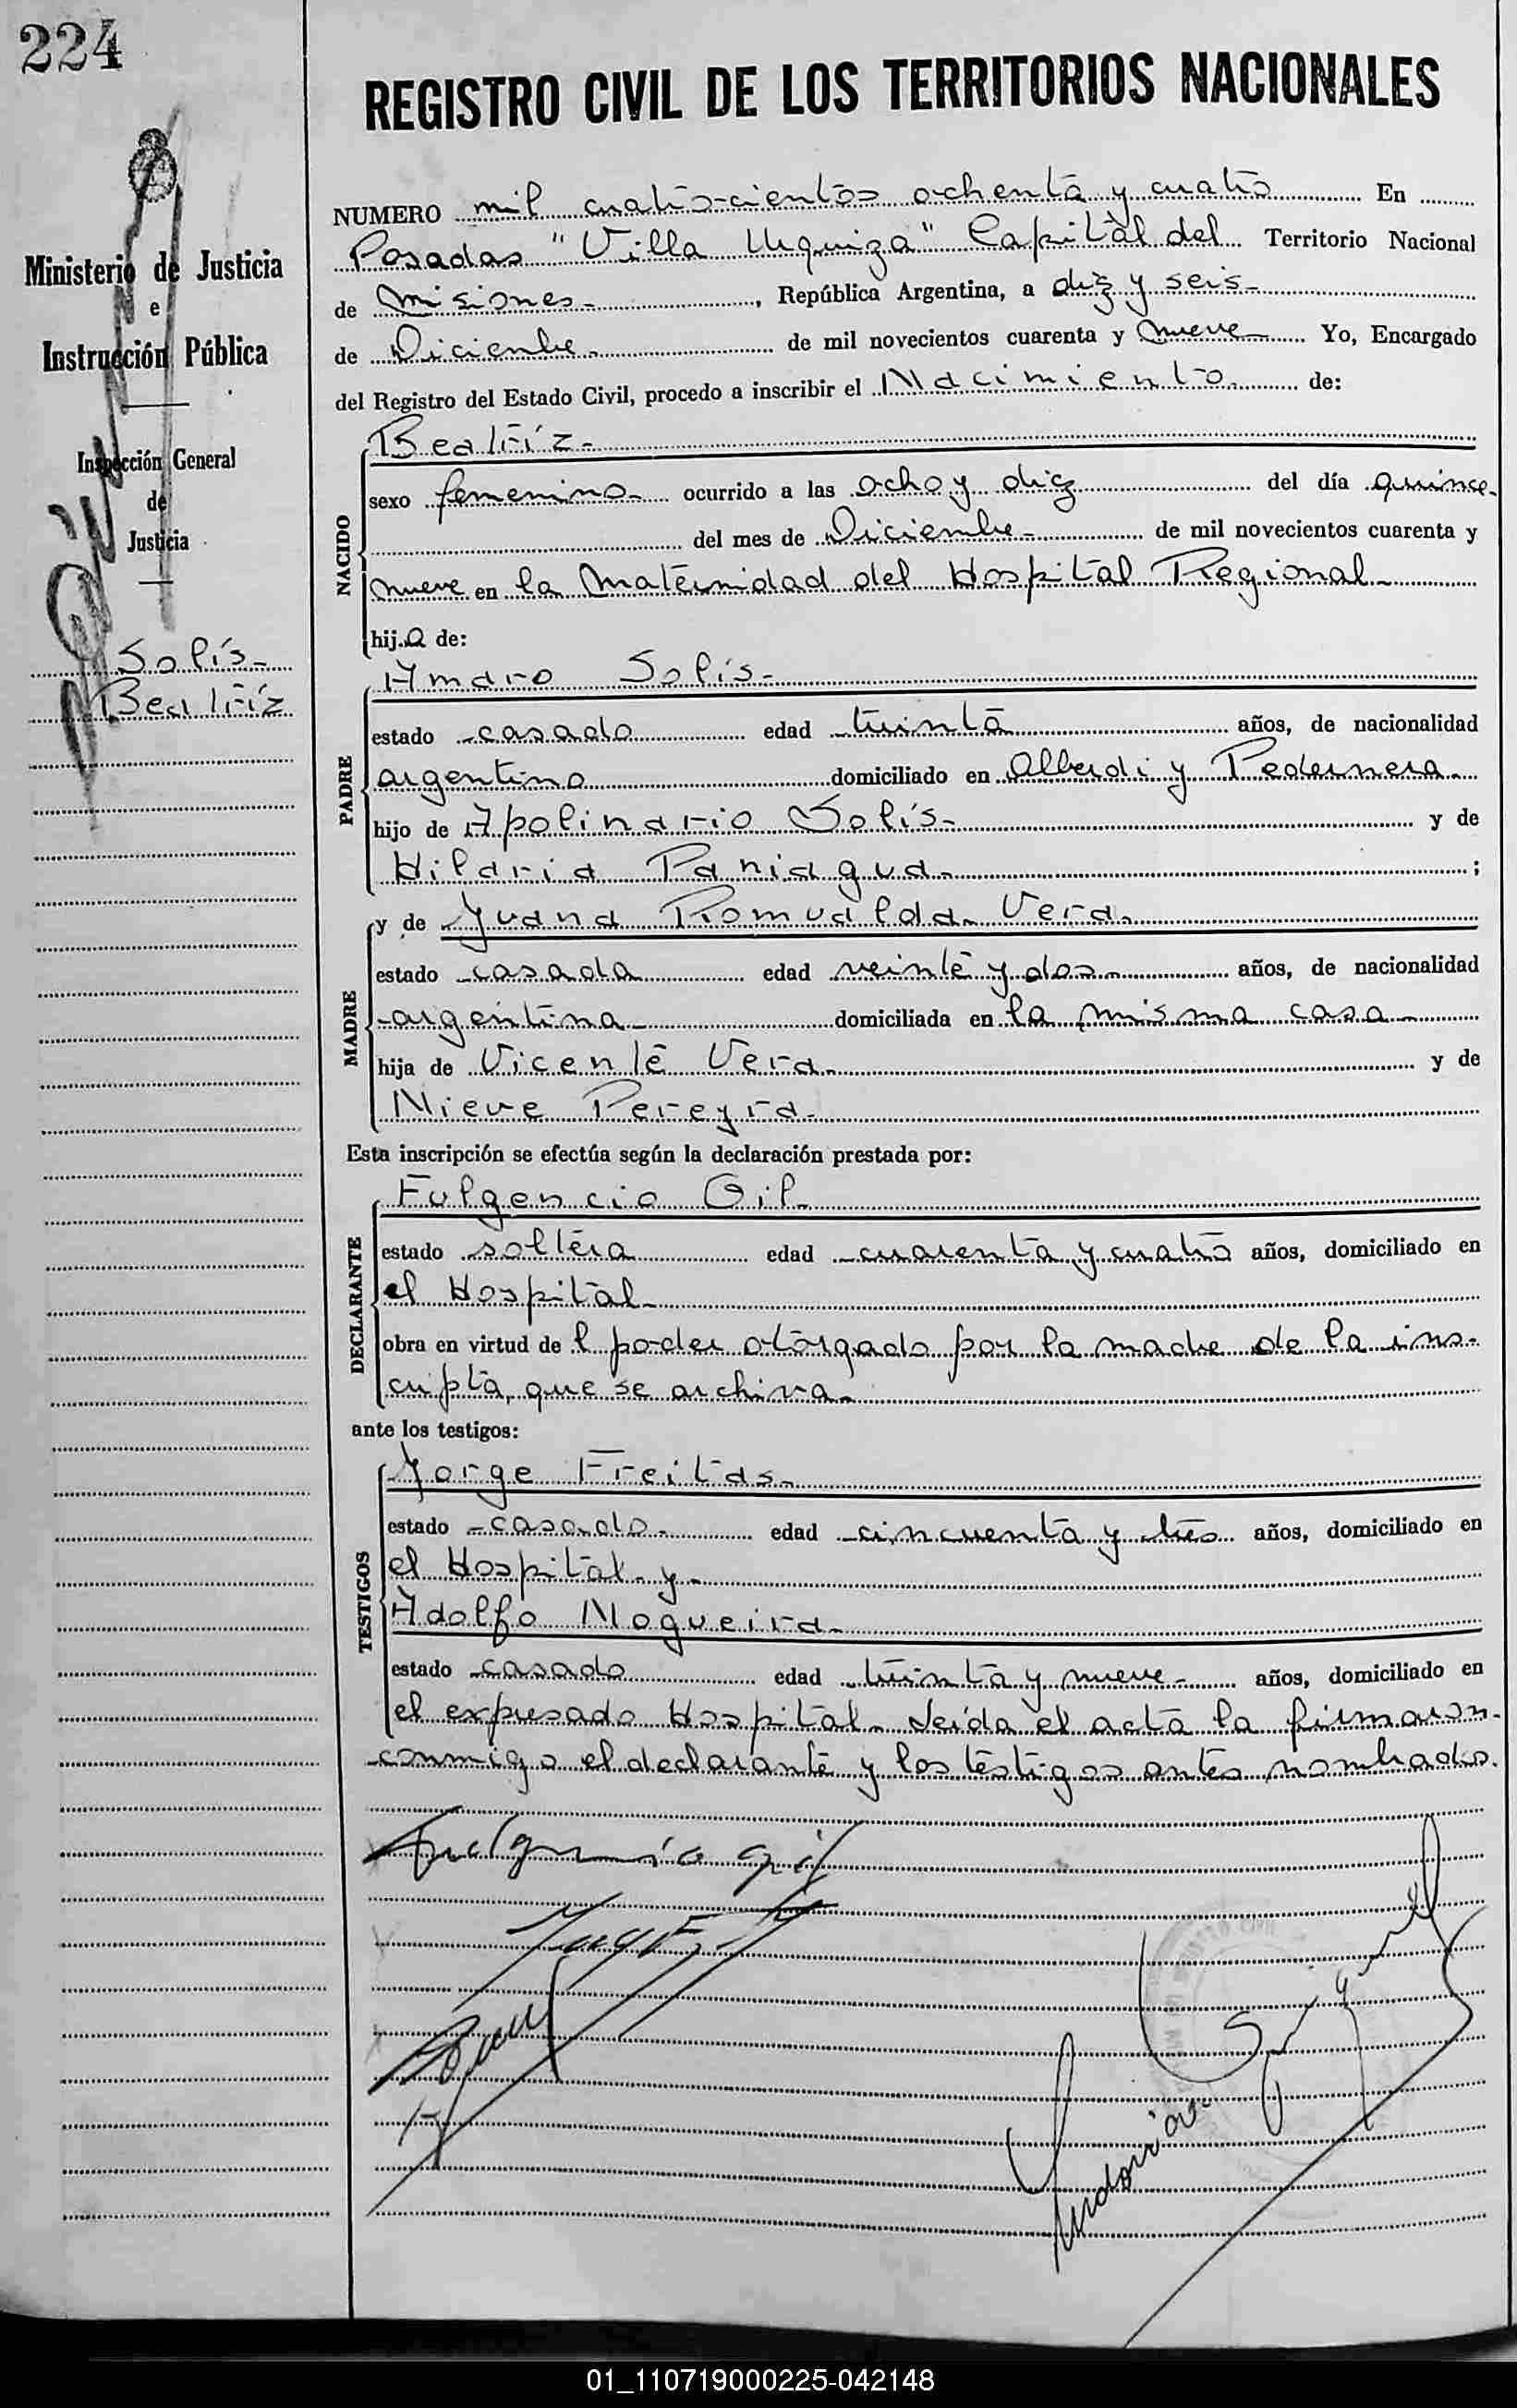 224
REGISTRO CIVIL DE LOS TERRITORIOS NACIONALES
Ministerio de Justicia
e
Instrucción Pública
Inspección General
de
Justicia
Solís-
Beatríz
NUMERO mil cuatro-cientos ochenta y cuatro En
Posadas "Villa Urquiza" Capital del Territorio Nacional
de Misiones-, República Argentina, a diez y seis-
de Diciembre- de mil novecientos cuarenta y nueve- Yo, Encargado
del Registro del Estado Civil, procedo a inscribir el Nacimiento. de:
NACIDO
Beatríz-
sexo femenino- ocurrido a las ocho y diez del día quince-
del mes de Diciembre- de mil novecientos cuarenta y
nueve en la Maternidad del Hospital Regional-
hij.a de:
PADRE
Amaro Solís-
estado casado edad treinta años, de nacionalidad
argentino domiciliado en Alberdi y Pedernera-
hijo de Apolinario Solís- y de
Hilaria Paniagua- ;
MADRE
y de Juana Romualda Vera-
estado casada edad veinte y dos- años, de nacionalidad
argentina- domiciliada en la misma casa-
hija de Vicente Vera- y de
Nieve Pereyra-
Esta inscripción se efectúa según la declaración prestada por:
DECLARANTE
Fulgencio Gil-
estado soltera edad cuarenta y cuatro años, domiciliado en
el Hospital-
obra en virtud de l poder otorgado por la madre de la ins-
cripta, que se archiva-
ante los testigos:
TESTIGOS
Jorge Freitas-
estado casado- edad cincuenta y tres años, domiciliado en
el Hospital y-
Adolfo Nogueira-
estado casado edad treinta y nueve- años, domiciliado en
el expresado Hospital- Leída el acta la firmaron-
conmigo el declarante y los testigos antes nombrados.
Fulgencio Gil
01_110719000225-042148